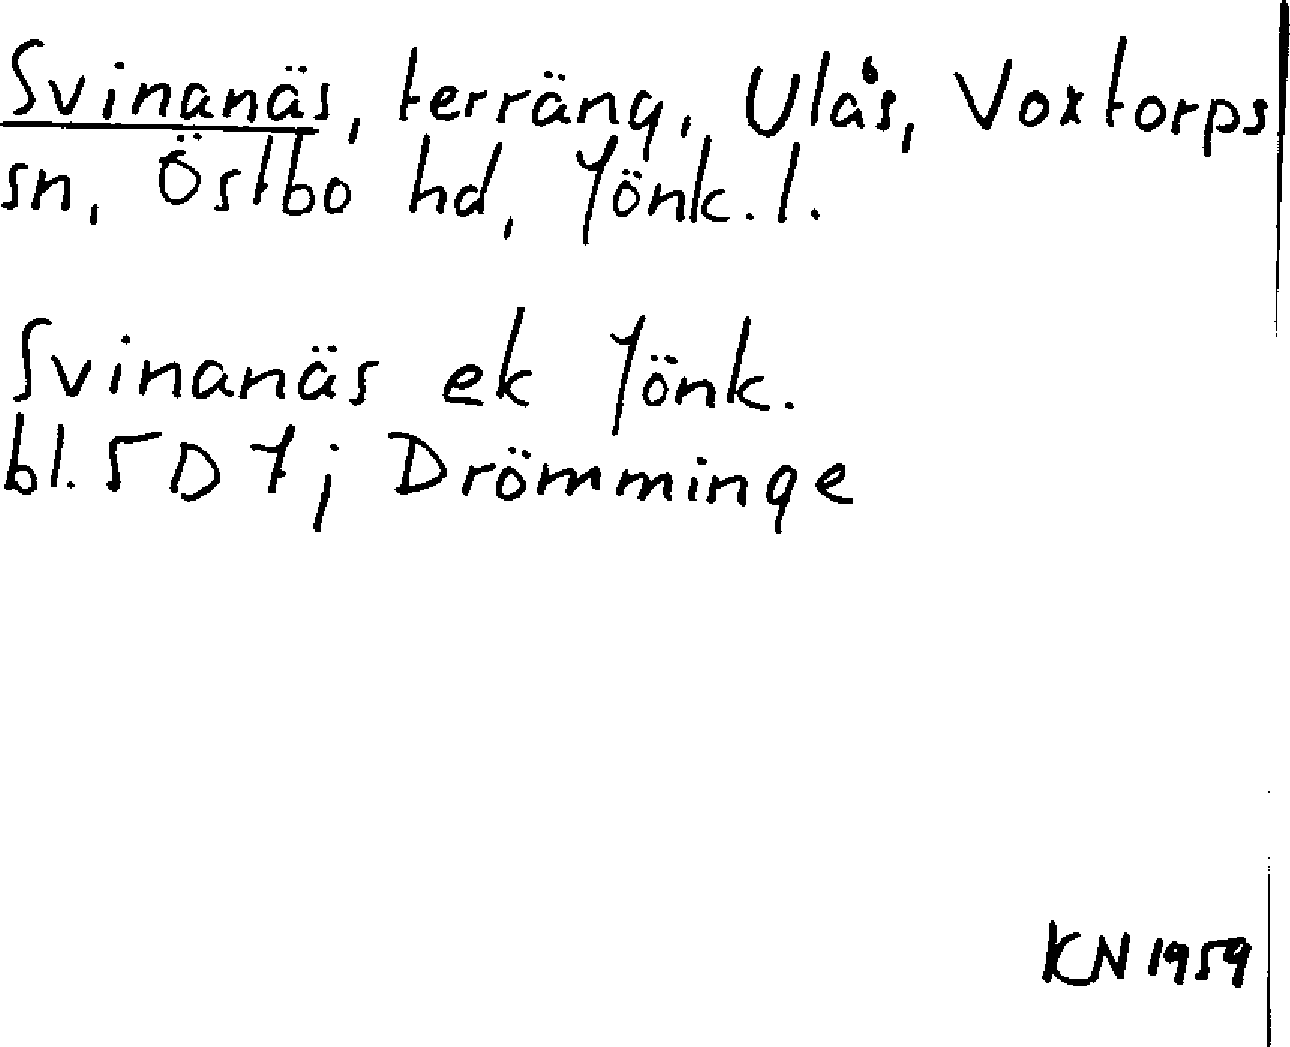 Svinanäs, terräng, Ulås, Voxtorps
sn, Östbo hd, Jönk. l.
Svinanäs ek Jönk.
bl. 5D 7j Drömminge
KN 1959